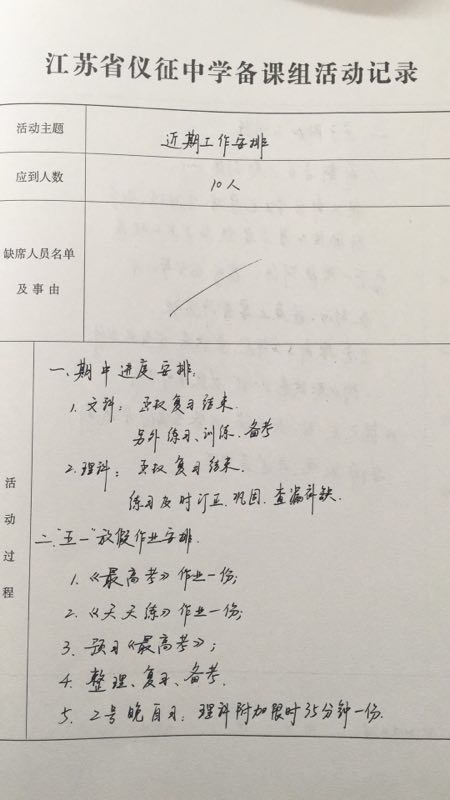 江苏省仪征中学备课组活动记录
活动主题
近期工作安排
应到人数
10人
缺席人员名单
及事由
活动过程
一、期中进度安排:
1. 文科: 复习结束.
另外练习、训练、备考
2. 理科: 复习结束.
练习及时订正、巩固、查漏补缺.
二、"五一"放假作业安排.
1.《最高考》作业一份;
2.《天天练》作业一份;
3. 预习《最高考》;
4. 整理、复习、备考.
5. 2号晚自习: 理科附加限时35分钟一份.